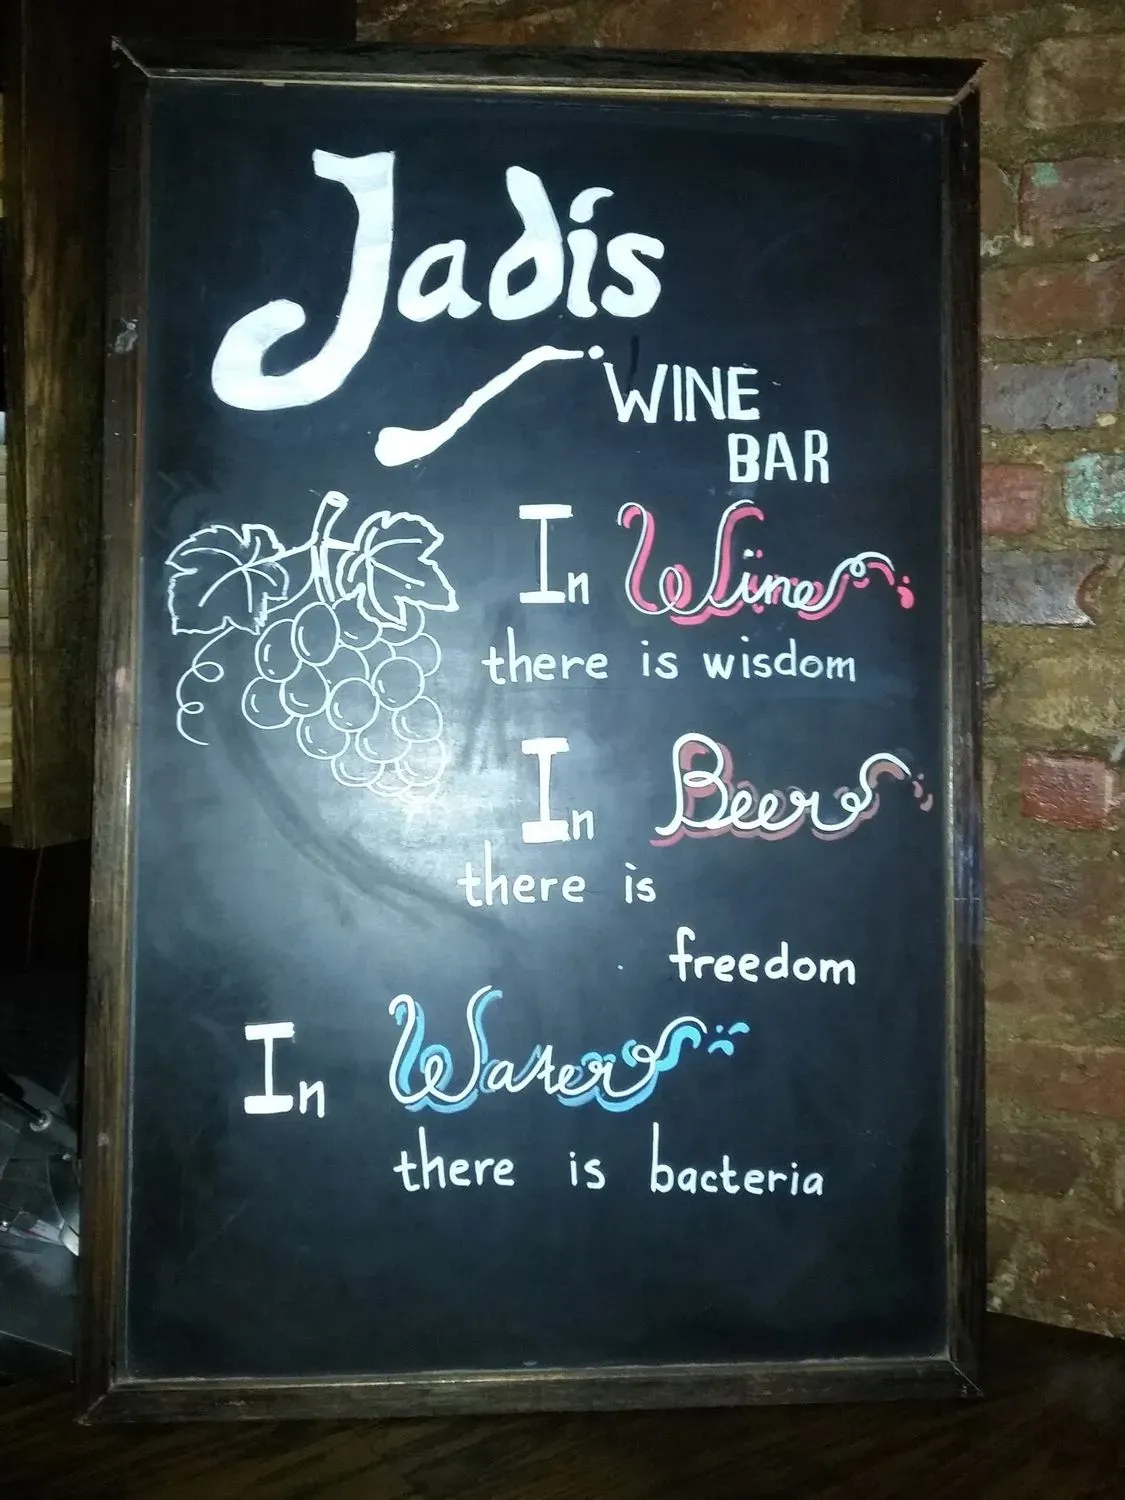 Jadis
WINE
BAR
In Wine
there is wisdom
In Beer
there is
freedom
In Water
there is bacteria